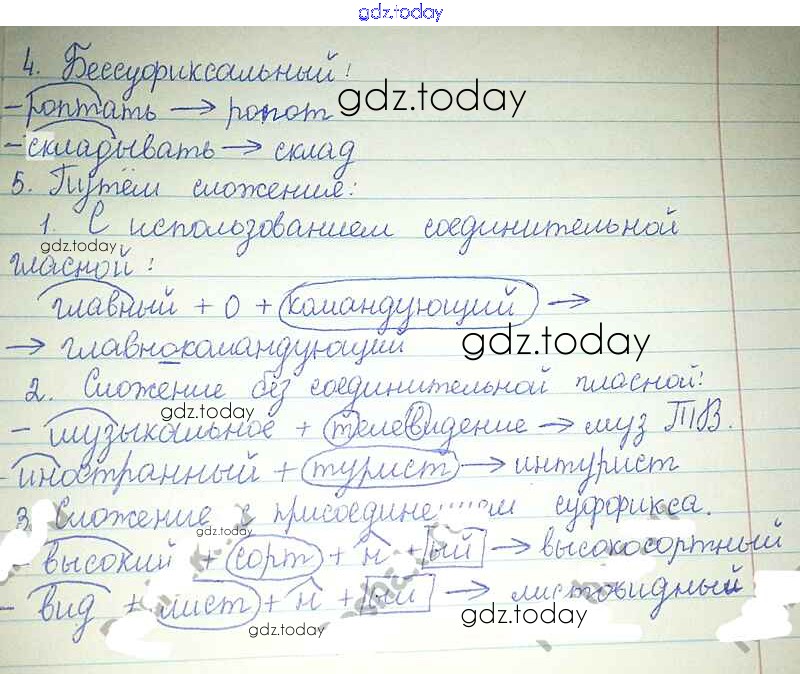 gdz.today
4. Бессуфиксальный:
- роптать → ропот gdz.today
- складывать → склад
5. Путём сложение:
1. С использованием соединительной
gdz.today
гласной:
главный + о + командующий →
→ главнокомандующий gdz.today
2. Сложение без соединительной гласной:
gdz.today
- музыкальное + телевидение → муз ТВ.
- иностранный + турист → интурист
3. Сложение с суффикса.
gdz.today
- высокий + сорт + н + ый → высокосортный
- вид + лист + н + ый → листовидный
gdz.today
gdz.today